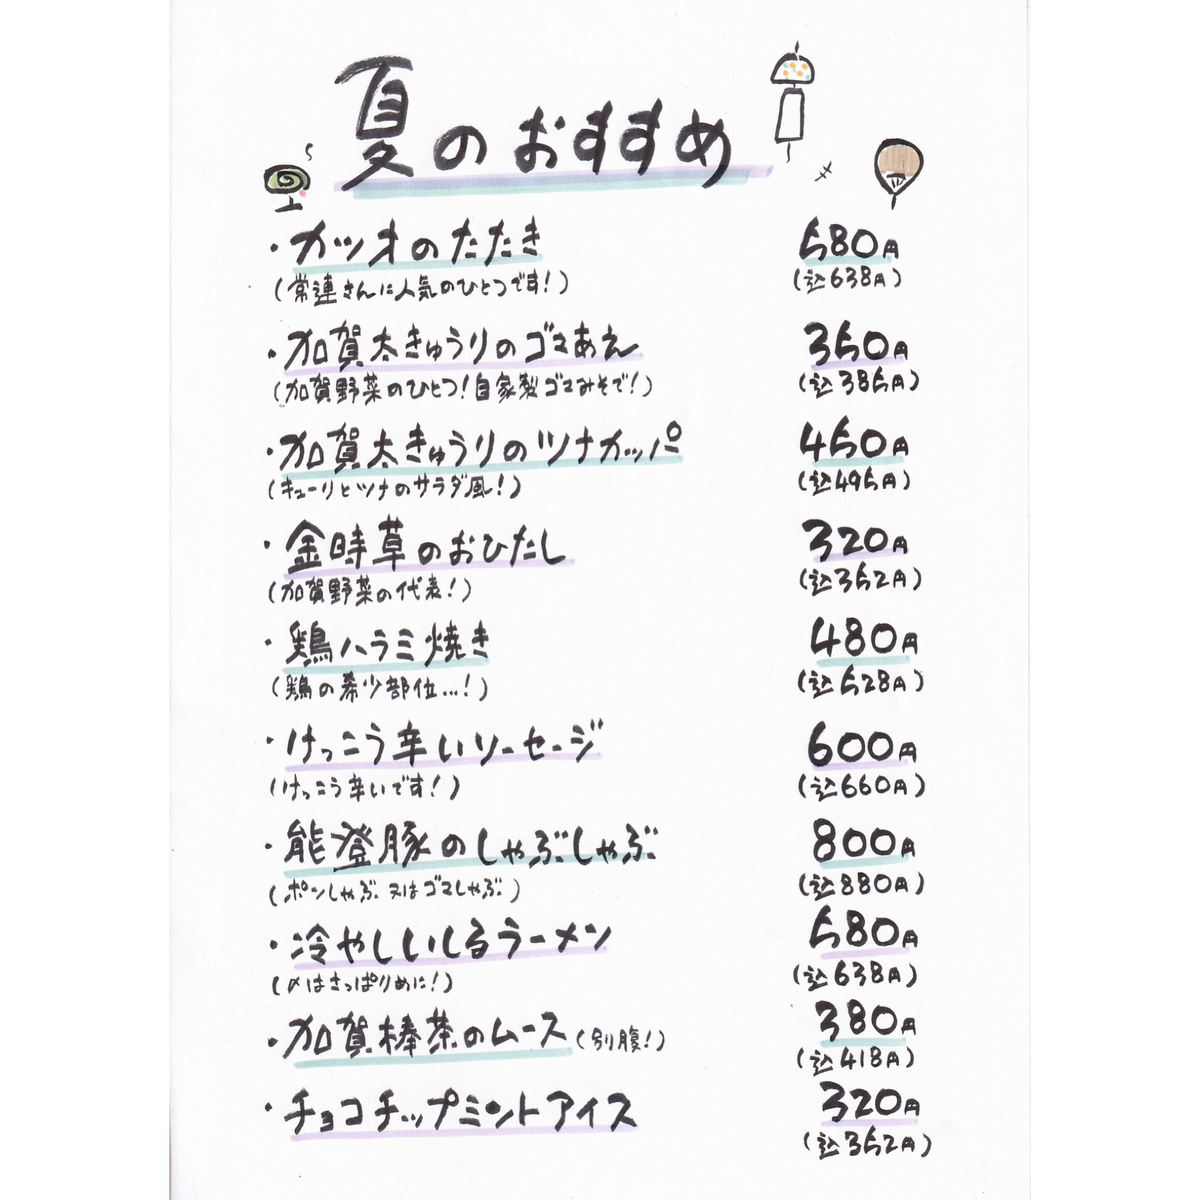 夏のおすすめ
・カツオのたたき 580円
(常連さんに人気のひとつです!) (込638円)
・加賀太きゅうりのゴマあえ 350円
(加賀野菜のひとつ!自家製ゴマみそで!) (込385円)
・加賀太きゅうりのツナカッパ 450円
(キューリとツナのサラダ風!) (込495円)
・金時草のおひたし 320円
(加賀野菜の代表!) (込352円)
・鶏ハラミ焼き 480円
(鶏の希少部位...!) (込528円)
・けっこう辛いソーセージ 600円
(けっこう辛いです!) (込660円)
・能登豚のしゃぶしゃぶ 800円
(ポンしゃぶ 又はゴマしゃぶ) (込880円)
・冷やしいしるラーメン 580円
(〆はさっぱりめに!) (込638円)
・加賀棒茶のムース(別腹!) 380円
(込418円)
・チョコチップミントアイス 320円
(込352円)